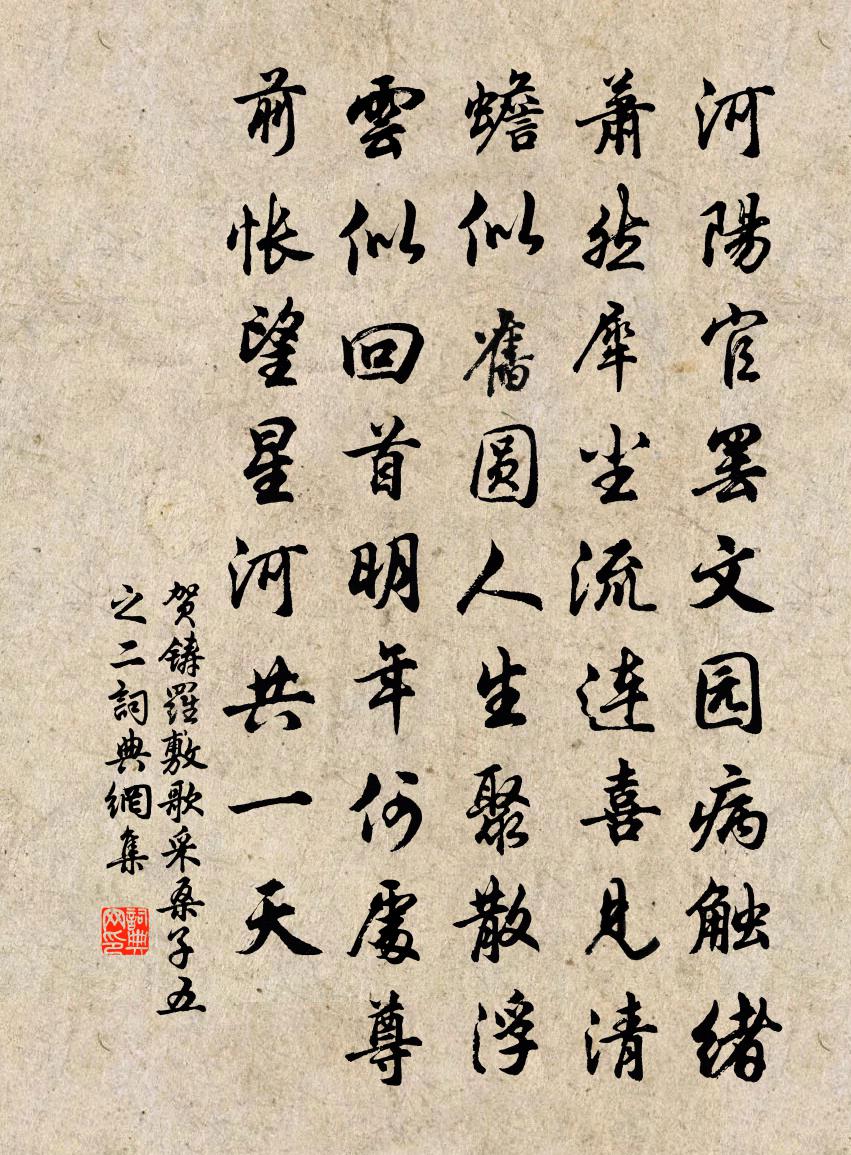 河陽官罢文园病触绪
萧然犀尘流连喜見清
蟾似舊圆人生聚散浮
雲似回首明年何處尊
前怅望星河共一天
贺鋳羅敷歌采桑子五
之二詞典網集
詞典網印